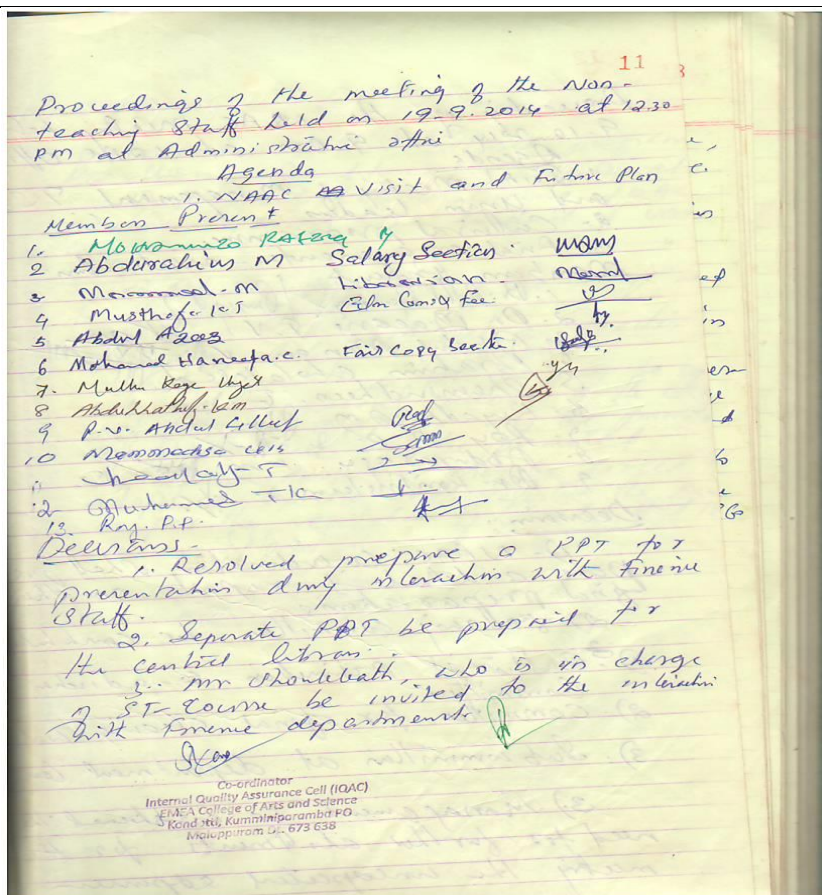 11
Proceedings of the meeting of the Non-
teaching Staff held on 19-9.2014 at 12.30
pm at Administrative office
Agenda
1. NAAC Visit and Future Plan
Members Present
1.
2 Abdurrahiman M Salary Section.
3 Mohammed-M Librarian.
4 Musthafa K.T Edn Comi & fee.
5 Abdul Azeez
6 Mohamed Haneefa.c. Fair Copy Section.
7. Muthu Koya
8
9 P.V. Abdul
10
11
12 Muhammed T.K
13. Roy. P.P.
Decisions
1. Resolved prepare a PPT for
presentation during interaction with Finance
Staff.
2. Separate PPT be prepared for
the central library.
3. Mr Shoukkath, who is in charge
of ST-Course be invited to the interaction
with Finance department.
Co-ordinator
Internal Quality Assurance Cell (IQAC)
EMEA College of Arts and Science
Kondotti, Kumminiparamba PO
Malappuram Dt. 673 638